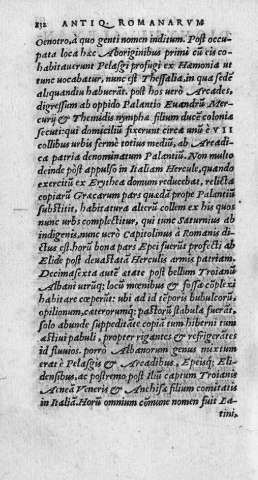 232 ANTIQ. ROMANARVM
Oenotro, à quo genti nomen inditum. Post occu
pata loca hæc Aboriginibus primi cū eis co-
habitauerunt Pelasgi profugi ex Hæmonia ut
tunc uocabatur, nunc est Thessalia, in qua sedē
aliquandiu habuerāt. post hos uerò Arcades,
digressum ab oppido Palantio Euandrū Mer-
curij & Themidis nympha filium ducē colonia
secuti: qui domicilia fixerunt circa unū è VII
collibus urbis fermè totius mediū, ab Arcadi-
ca patria denominatum Palantiū. Non multo
deinde pòst appulso in Italiam Hercule, quando
exercitū ex Erythea domum reducebat, relicta
copiarū Græcarum pars quædā prope Palantiū
substitit, habitatura alterū collem ex his quos
nunc urbs complectitur, qui tunc Saturnius ab
indigenis, nunc uerò Capitolinus à Romanis di
ctus est. horū bona pars Epei fuerūt profecti ab
Elide post deuastatā Herculis armis patriam.
Decimasexta autē ætate post bellum Troianū
Albani utrūq; locū mœnibus & fossa cōplexi
habitare cœperūt: ubi ad id tēporis bubulcorū,
opilionum, cæterorumq; pastorū stabula fuerāt,
solo abunde suppeditāte copiā tum hiberni tum
æstiui pabuli, propter rigantes & refrigerātes
id fluuios. porrò Albanorum genus mixtum
erat è Pelasgis & Arcadibus, Epeisq; Eli-
densibus, ac postremo post Iliū captum Troianis
Aeneā Veneris & Anchisæ filium comitatis
in Italiā. Horū omnium cōmune nomen fuit La-
tini,